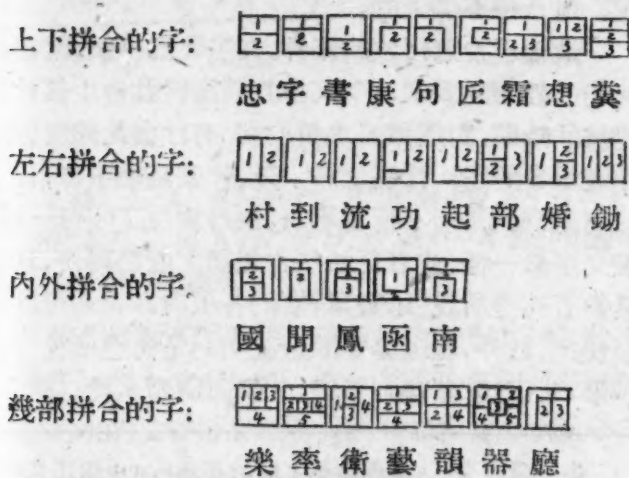 上下拼合的字:
忠字書康句匠霜想糞
左右拼合的字:
村到流功起部婚鋤
內外拼合的字
國聞鳳函南
幾部拼合的字:
樂率衛藝韻器廳